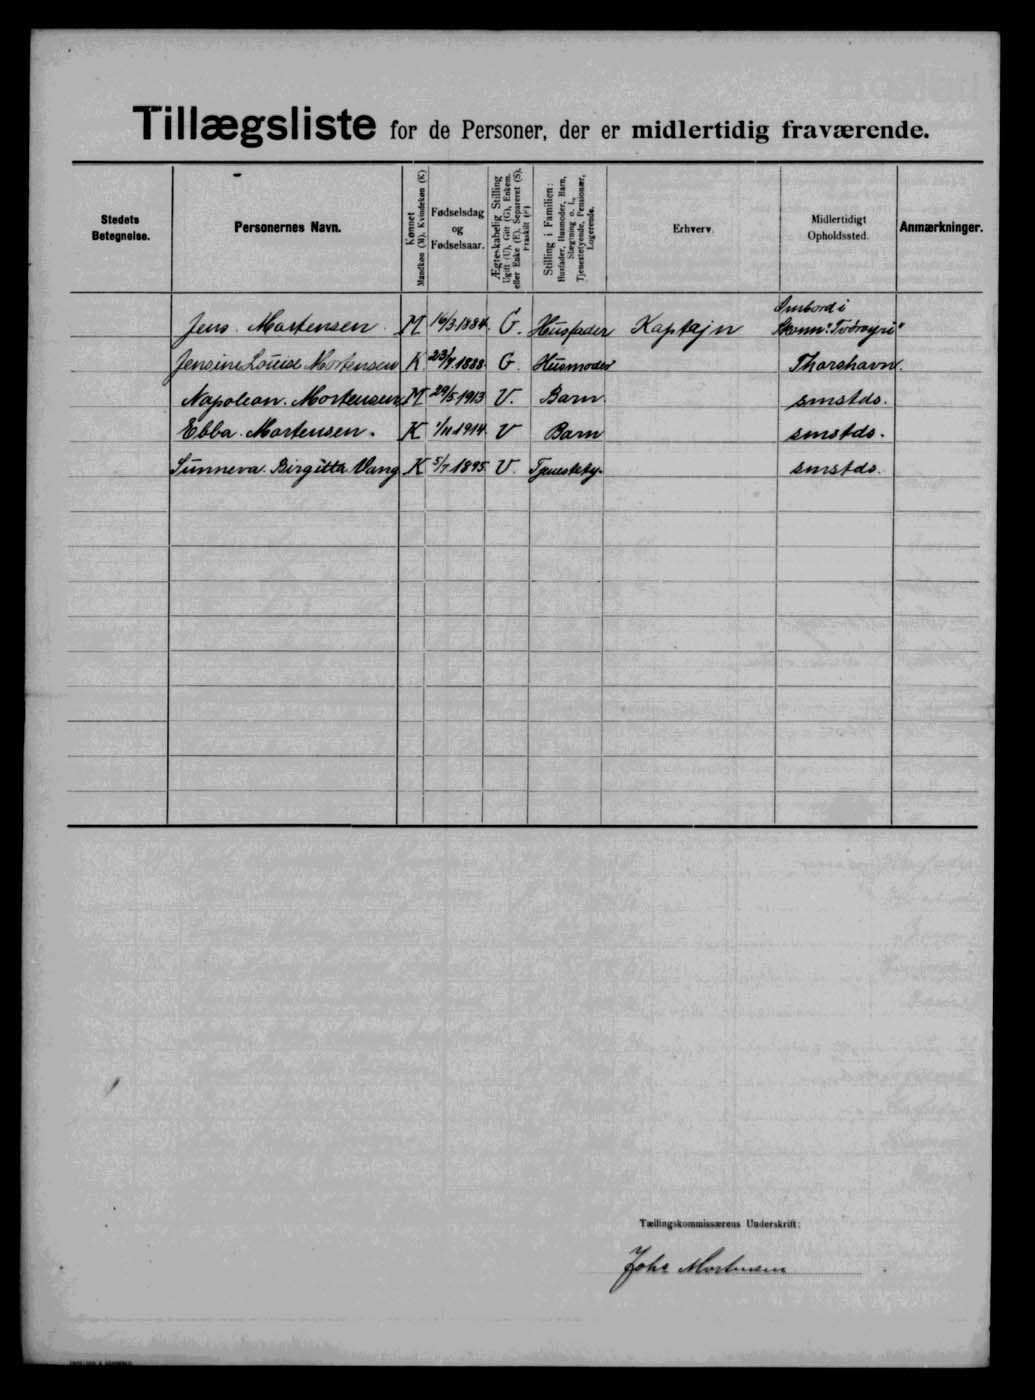 Tillægsliste for de Personer, der er midlertidig fraværende.
Stedets Betegnelse.
Personernes Navn.
Kønnet
Mandkøn (M), Kvindekøn (K)
Fødselsdag
og
Fødselsaar.
Ægteskabelig Stilling
Ugift (U), Gift (G), Enkem.
eller Enke (E), Separeret (S),
Fraskilt (F)
Stilling i Familien:
Husfader, Husmoder, Barn,
Slægtning o. l.,
Tjenestetyende, Pensionær,
Logerende.
Erhverv.
Midlertidigt
Opholdssted.
Anmærkninger.
Jens. Mortensen. M 14/3 1884. G. Husfader Kaptajn Ombord i Skonn. "Tvöroyri"
Jensine Louise Mortensen K. 23/4 1888. G. Husmoder Thorshavn.
Napolean. Mortensen M 29/5 1913 U. Barn. smstds.
Ebba. Mortensen. K 1/11 1914. U Barn smstds.
Sunneva. Birgitta Vang K 5/7 1895 U. Tjenestety. smstds.
Tællingskommissærens Underskrift:
Johs Mortensen